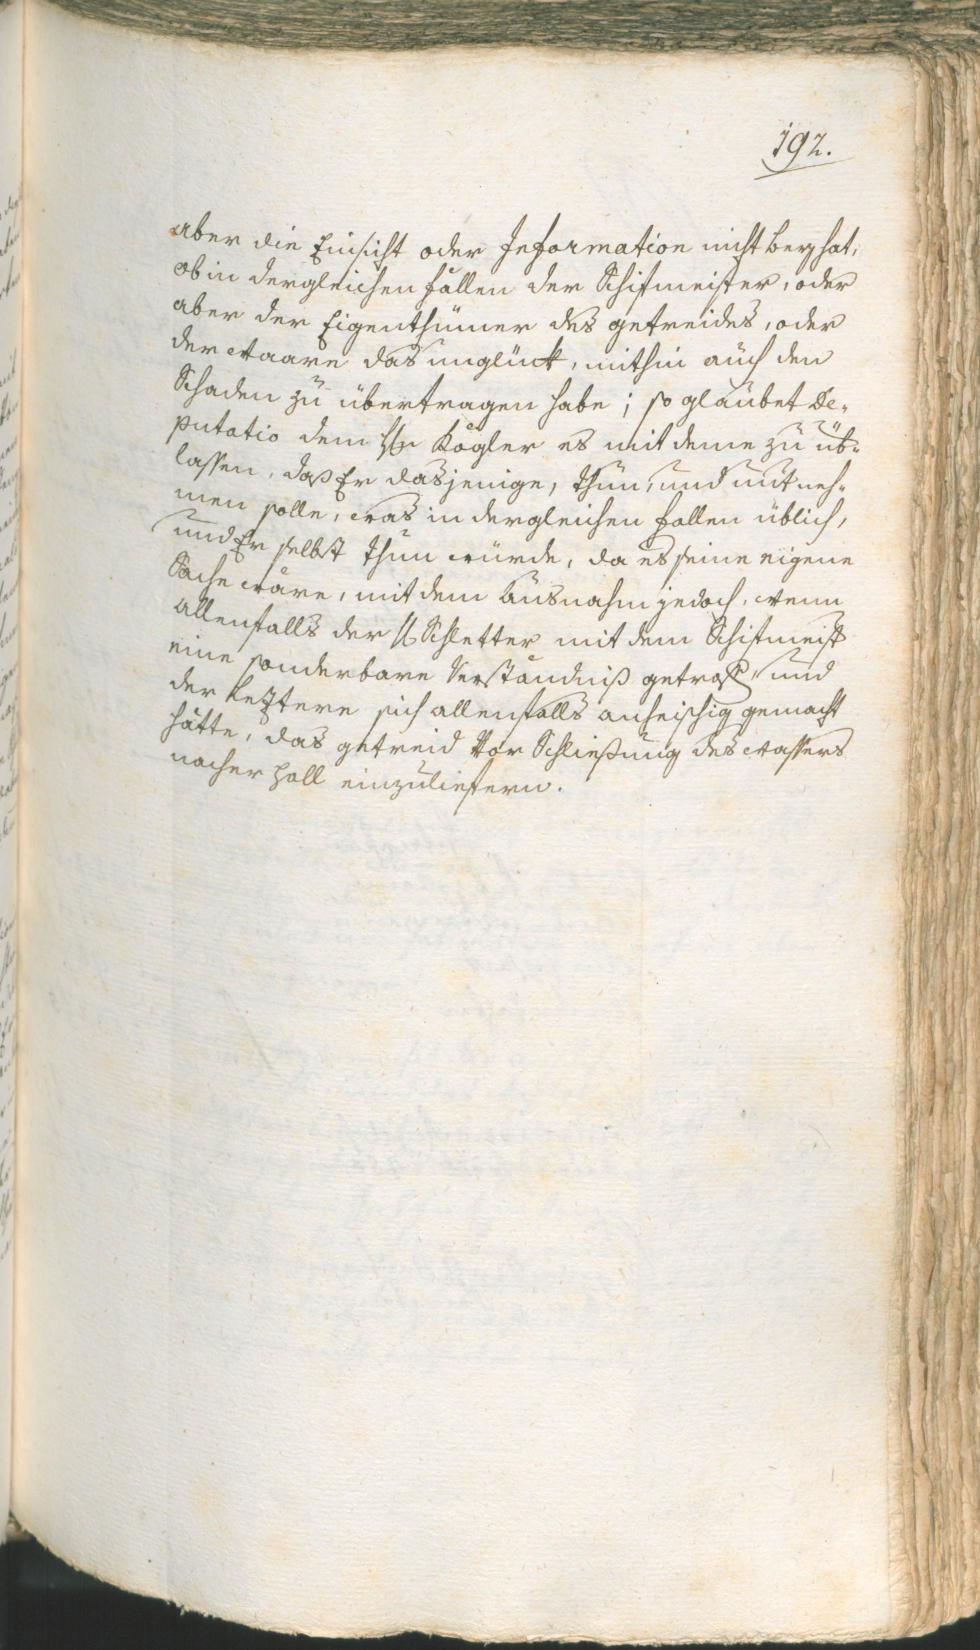 192.
aber die Einsicht oder Information nicht beyhat,
ob in dergleichen fällen der Schifmeister, oder
aber der Eigenthümer des getreides, oder
der Waare das unglück, mithin auch den
Schaden zu übertragen habe; so glaubet De-
putatio dem H Kögler es mit deme zu üb-
lassen, daß Er dasjenige, thun, und mit neh-
men solle, was in dergleichen fallen üblich,
und Er selbst thun würde, da es seine eigene
Sache wäre, mit dem Ausnahm jedoch, wenn
allenfalls der H Schletter mit dem Schifmeist
eine sonderbare Verständniß getrof, und
der leztere sich allenfalls anheischig gemacht
hätte, das getreid Vor Schließung des Wassers
nacher Hall einzuliefern.